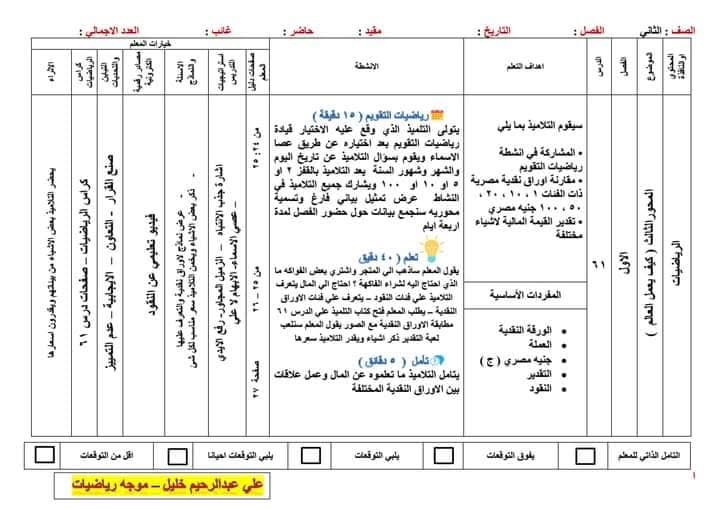 الصف : الثاني
الفصل :
التاريخ :
مقيد :
حاضر :
غائب :
العدد الاجمالي :
المحتوي
الموضوع
الفصل
الدرس
اهداف التعلم
الانشطة
صفحات دليل المعلم
استراتيجيات التدريس
الاسئلة والنماذج
خيارات المعلم
مصادر رقمية الكترونية
التباين والتحديات
كراس الرياضيات
الاثراء
الرياضيات
المحور الثالث ( كيف يعمل العالم )
الاول
٦١
سيقوم التلاميذ بما يلي
• المشاركة في انشطة
رياضيات التقويم
• مقارنة اوراق نقدية مصرية
ذات الفئات ١ ، ١٠ ، ٢٠ ،
٥٠ ، ١٠٠ جنيه مصري
• تقدير القيمة المالية لاشياء
مختلفة
المفردات الأساسية
• الورقة النقدية
• العملة
• جنيه مصري ( ج )
• التقدير
• النقود
رياضيات التقويم ( ١٥ دقيقة )
يتولى التلميذ الذي وقع عليه الاختيار قيادة
رياضيات التقويم بعد اختياره عن طريق عصا
الاسماء ويقوم بسؤال التلاميذ عن تاريخ اليوم
والشهر وشهور السنة بعد التلاميذ بالقفز ٢ او
٥ او ١٠ او ١٠٠ ويشارك جميع التلاميذ في
النشاط عرض تمثيل بياني فارغ وتسمية
محوريه سنجمع بيانات حول حضور الفصل لمدة
اربعة ايام
تعلم ( ٤٠ دقيق )
يقول المعلم ساذهب الي المتجر واشتري بعض الفواكه ما
الذي احتاج اليه لشراء الفاكهة ؟ احتاج الي المال يتعرف
التلاميذ علي فئات النقود – يتعرف علي فئات الاوراق
النقدية – يطلب المعلم فتح كتاب التلميذ علي الدرس ٦١
مطابقة الاوراق النقدية مع الصور يقول المعلم سنلعب
لعبة التقدير ذكر اشياء ويقدر التلاميذ سعرها
تأمل ( ٥ دقائق )
يتأمل التلاميذ ما تعلموه عن المال وعمل علاقات
بين الاوراق النقدية المختلفة
من ٢٤: ٢٥
من ٢٥ – ٢٦
صفحة ٢٧
اشارة جذب الانتباه – الزميل المجاور- رفع الايدي
– عصي الاسماء- الابهام لا علي
- عرض نماذج لاوراق نقدية والتعرف عليها
- ذكر بعض الاشياء ويخمن التلاميذ سعر مناسب لكل شئ
فيديو تعليمي عن النقود
صنع القرار - التعاون – الايجابية – عدم التمييز
كراس الرياضيات – صفحات درس ٦١
يحضر التلاميذ بعض الاشياء من بيئتهم ويقدرون اسعارها
التامل الذاتي للمعلم
يفوق التوقعات
يلبي التوقعات
يلبي التوقعات احيانا
اقل من التوقعات
١
علي عبدالرحيم خليل – موجه رياضيات